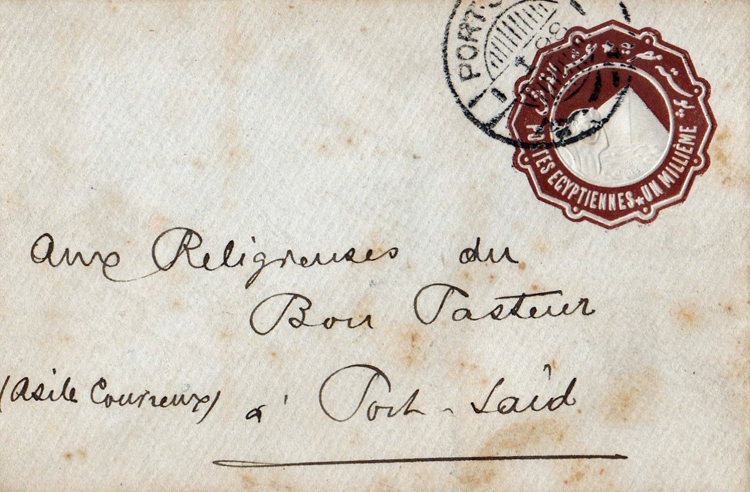 PORT-S
I 98
POSTES EGYPTIENNES ★ UN MILLIÈME
Aux Religieuses du
Bon Pasteur
(Asile Couvreux) à Port-Saïd